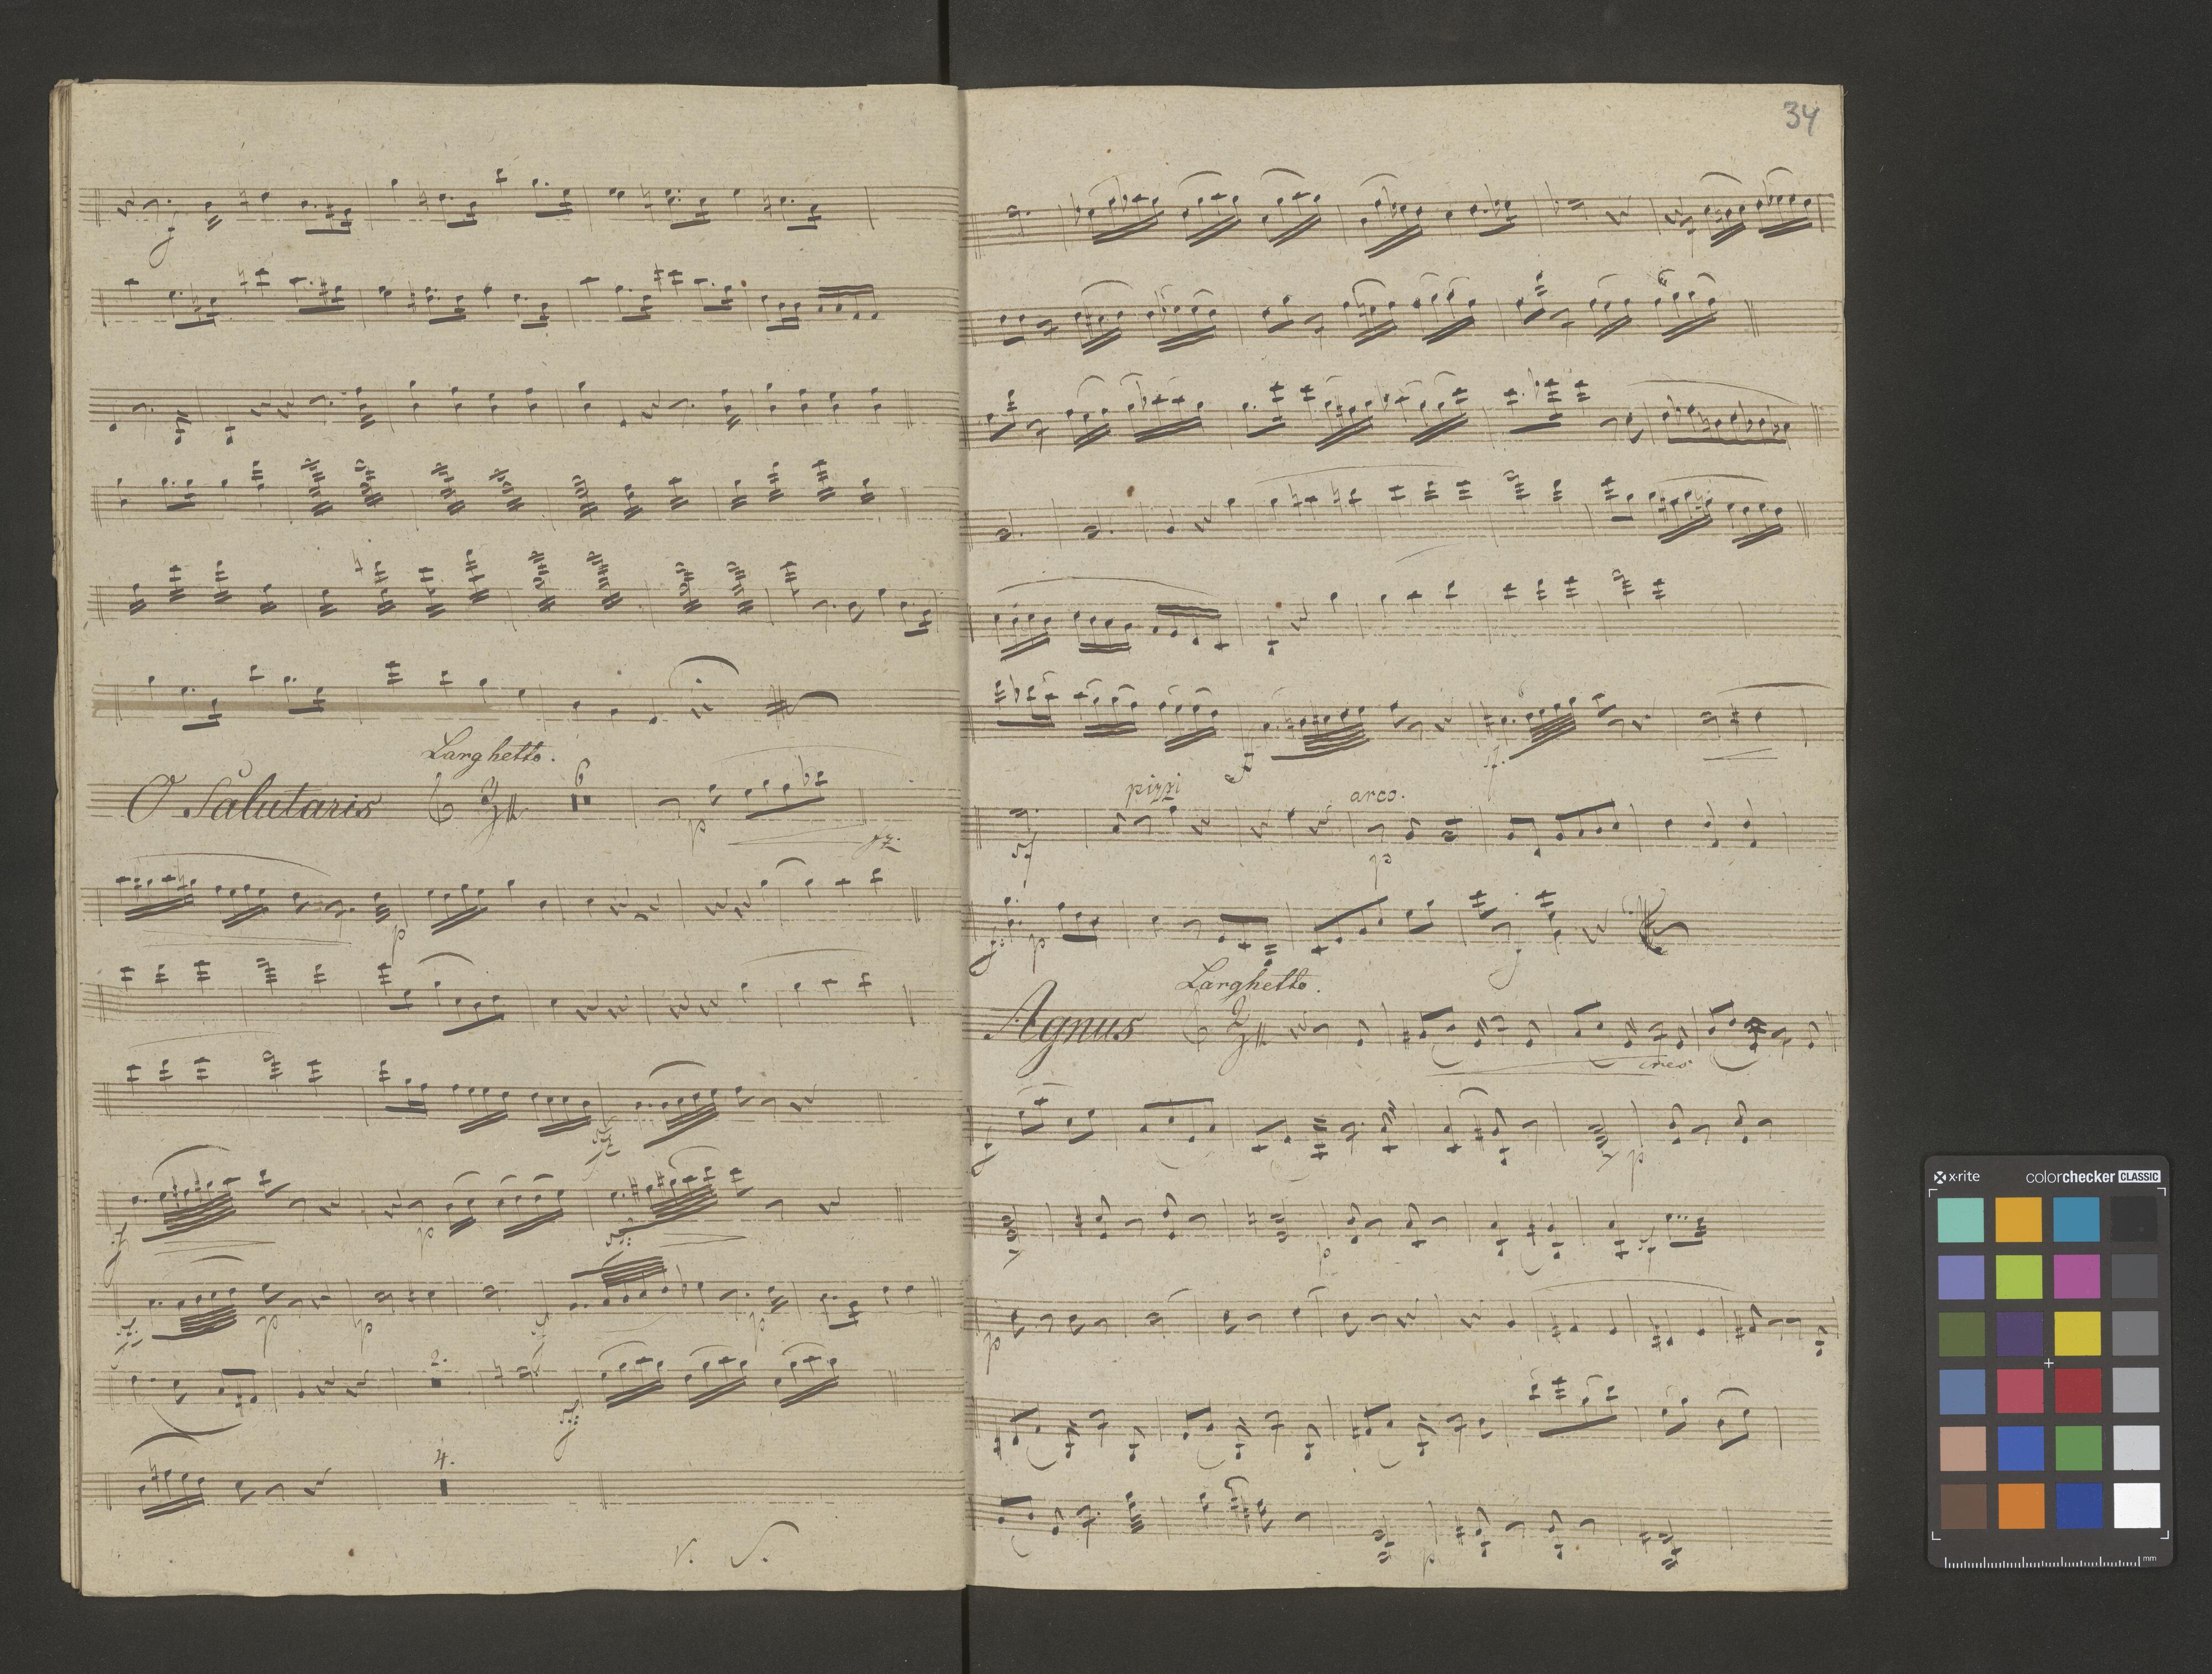 f
Larghetto.
6
O Salutaris
p
fz.
p
f
p
p
p
p
2.
4.
V. S.
34
6
6
f
sf.
pizzi
arco.
sf
p
f: p
f
Larghetto.
Agnus
cres
f
p
p
sf
p
p
x-rite
colorchecker CLASSIC
mm